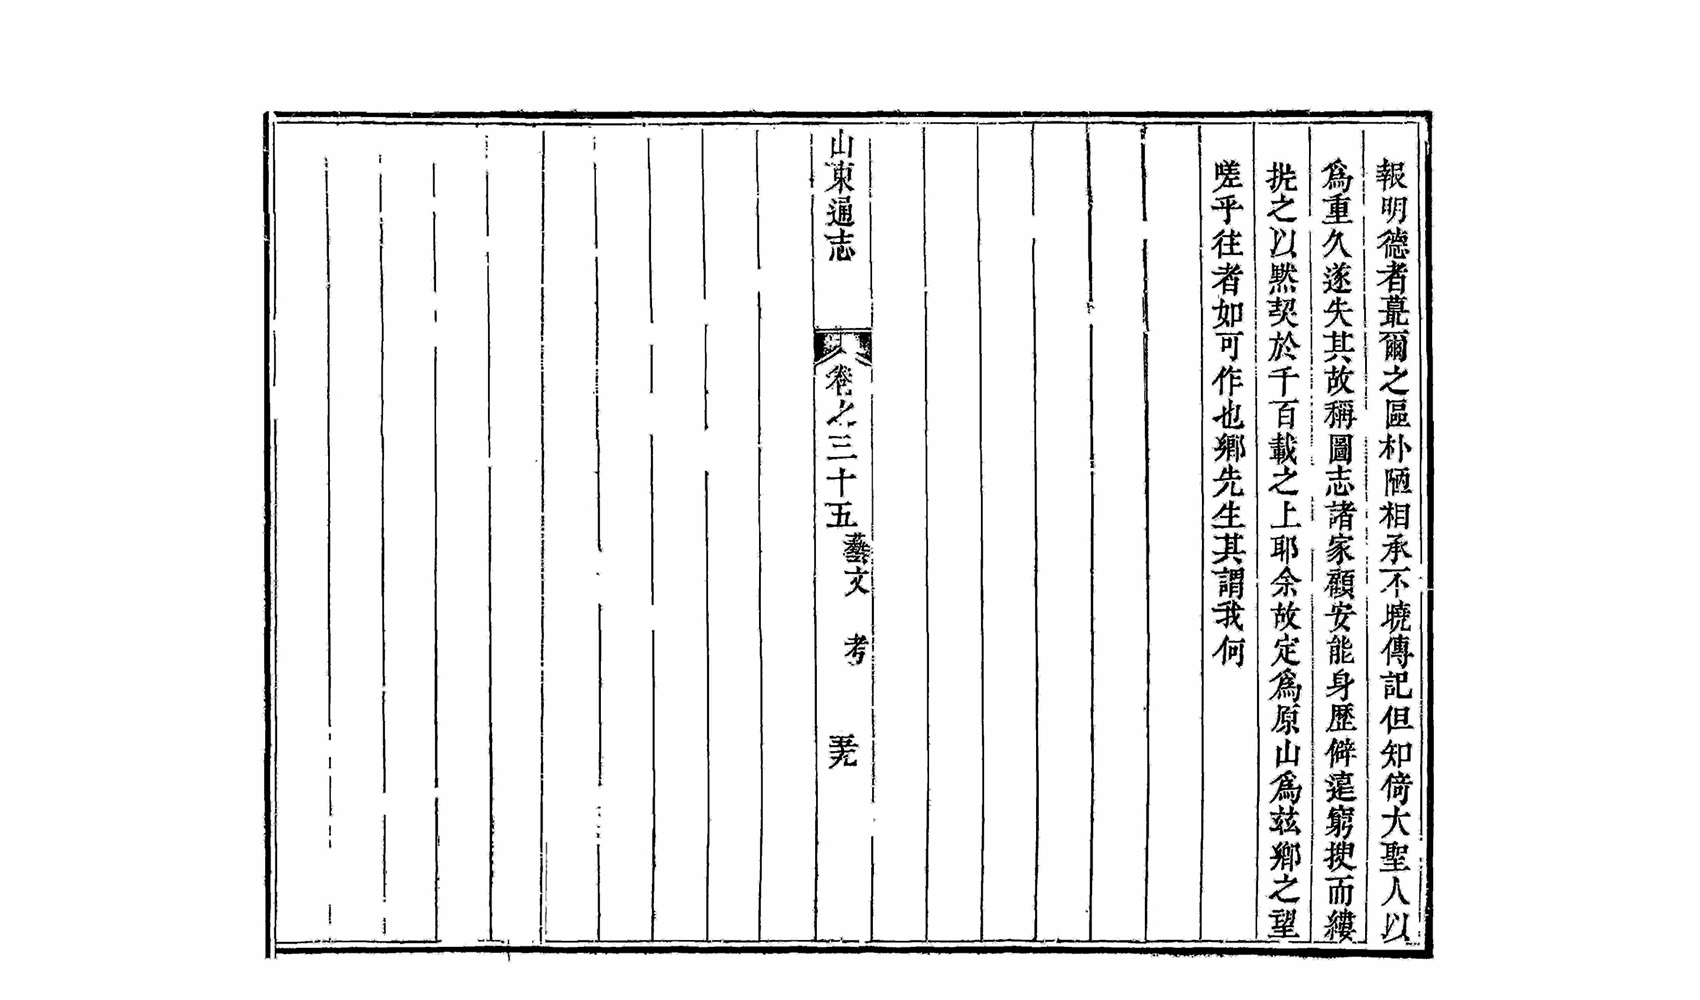 報明德者蕞爾之區朴陋相承不曉傳記但知倚大聖人以
爲重久遂失其故稱圖志諸家顧安能身歷僻遠窮搜而縷
之以黙契於千百載之上耶余故定爲原山爲茲鄉之望
嗟乎往者如可作也鄉先生其謂我何
山東通志 卷之三十五 藝文 考